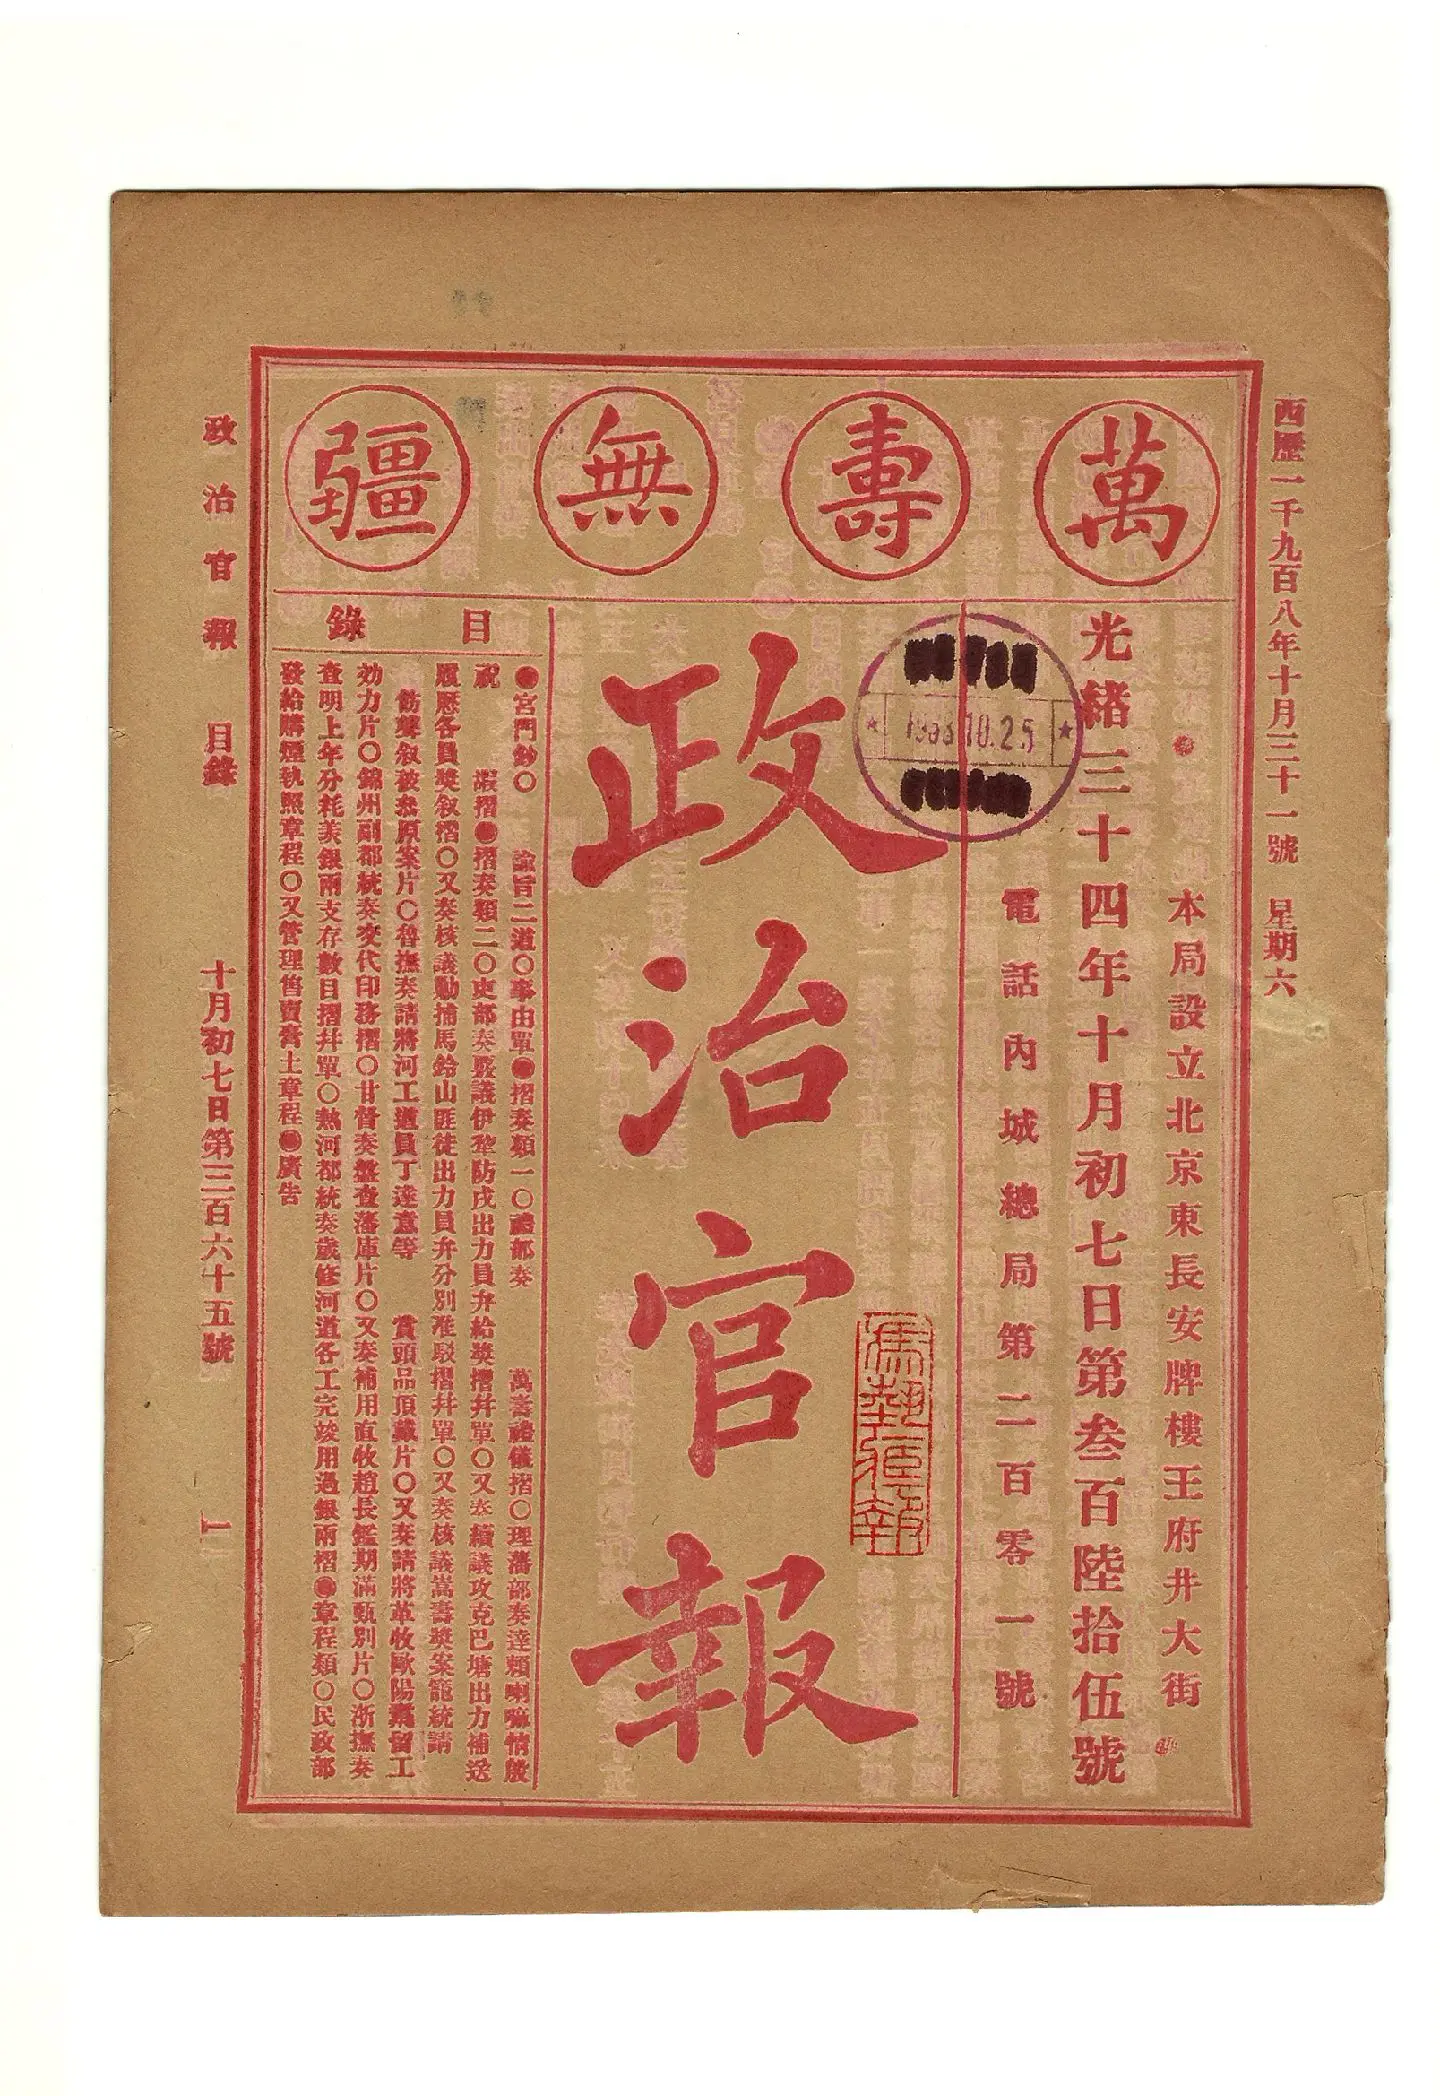 西歷一千九百八年十月三十一號　星期六
萬壽無疆
本局設立北京東長安牌樓王府井大街
光緒三十四年十月初七日第叁百陸拾伍號
電話內城總局第二百零一號
10.25
政治官報
目錄
●宮門鈔○　諭旨二道○事由單●摺奏類一○禮部奏　萬壽禮儀摺○理藩部奏達賴喇嘛情殷
祝　嘏摺●摺奏類二○吏部奏覈議伊犂防戍出力員弁給獎摺幷單○又奏續議攻克巴塘出力補送
履歷各員獎敘摺○又奏核議勦捕馬鈴山匪徒出力員弁分別准駁摺幷單○又奏核議嵩壽獎案籠統請
飭聲敘被叅原案片○魯撫奏請將河工道員丁達意等　賞頭品頂戴片○又奏請將革牧歐陽留工
効力片○錦州副都統奏交代印務摺○甘督奏盤查藩庫片○又奏補用直牧趙長鑑期滿甄別片○浙撫奏
查明上年分耗羨銀兩支存數目摺幷單○熱河都統奏歲修河道各工完竣用過銀兩摺●章程類○民政部
發給購煙執照章程○又管理售賣膏土章程●廣告
政治官報　目錄　十月初七日第三百六十五號　一